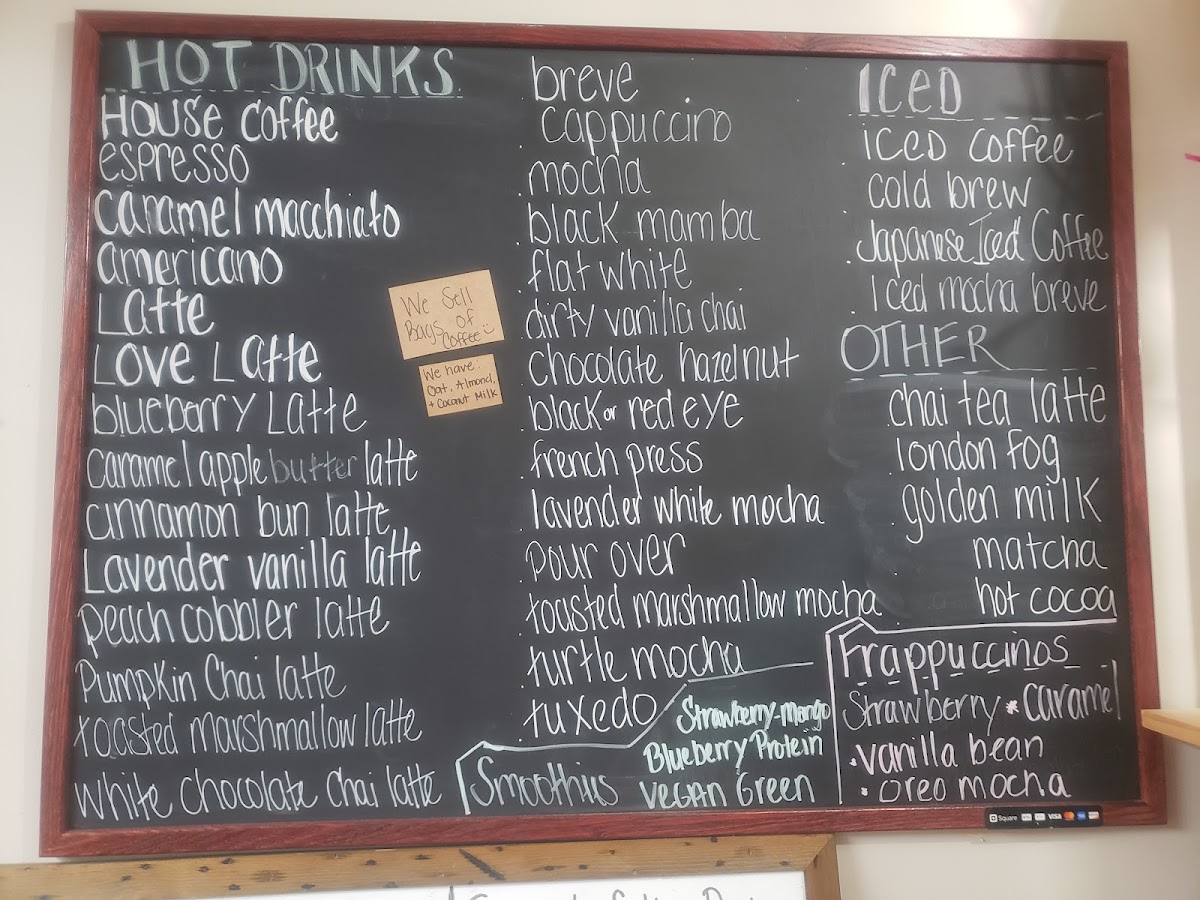 HOT DRINKS
House coffee
espresso
caramel macchiato
americano
Latte
Love Latte
blueberry Latte
caramel apple butter latte
cinnamon bun latte
Lavender vanilla latte
peach cobbler latte
Pumpkin Chai latte
toasted marshmallow latte
White chocolate Chai latte
We Sell
Bags of
Coffee
We have:
Oat, Almond,
+ Coconut Milk
breve
cappuccino
mocha
black mamba
flat white
dirty vanilla chai
chocolate hazelnut
black or red eye
french press
lavender white mocha
pour over
toasted marshmallow mocha
turtle mocha
tuxedo
Smoothies
Strawberry-mango
Blueberry Protein
VEGAN Green
ICED
ICED coffee
cold brew
Japanese Iced Coffee
Iced mocha breve
OTHER
chai tea latte
london fog
golden milk
matcha
hot cocoa
Frappuccinos
Strawberry * caramel
vanilla bean
oreo mocha
Square VISA